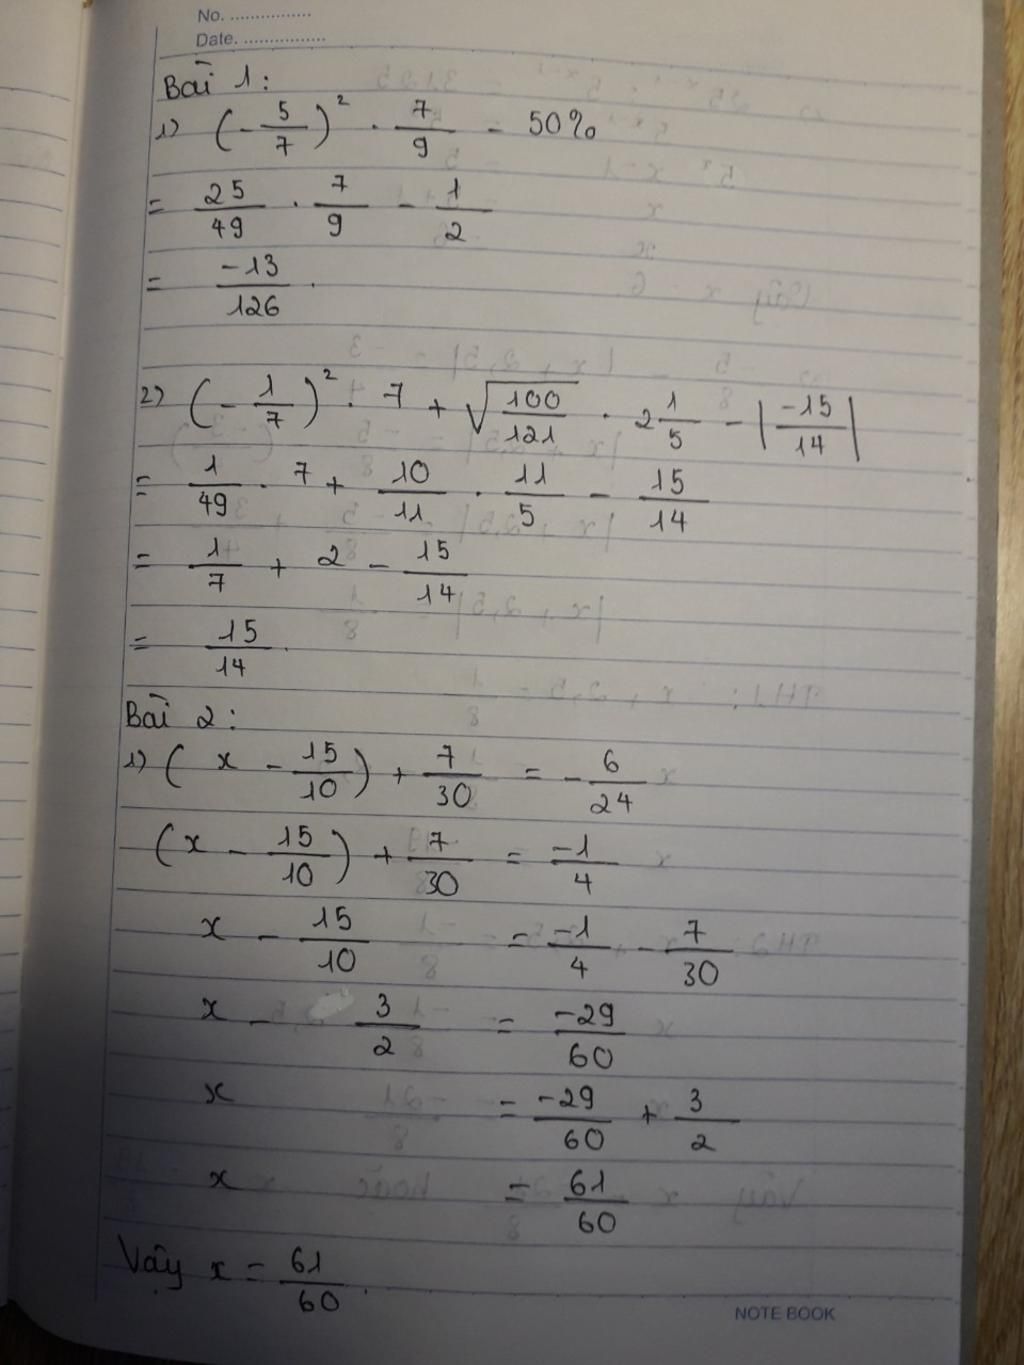 No. ................
Date. ................
Bài 1:
1) (-5/7)² . 7/9 - 50%
= 25/49 . 7/9 - 1/2
= -13/126 .
2) (-1/7)² . 7 + √(100/121) . 2 1/5 - |-15/14|
= 1/49 . 7 + 10/11 . 11/5 - 15/14
= 1/7 + 2 - 15/14
= 15/14 .
Bài 2:
1) (x - 15/10) + 7/30 = - 6/24
(x - 15/10) + 7/30 = -1/4
x - 15/10 = -1/4 - 7/30
x - 3/2 = -29/60
x = -29/60 + 3/2
x = 61/60
Vậy x = 61/60 .
NOTE BOOK